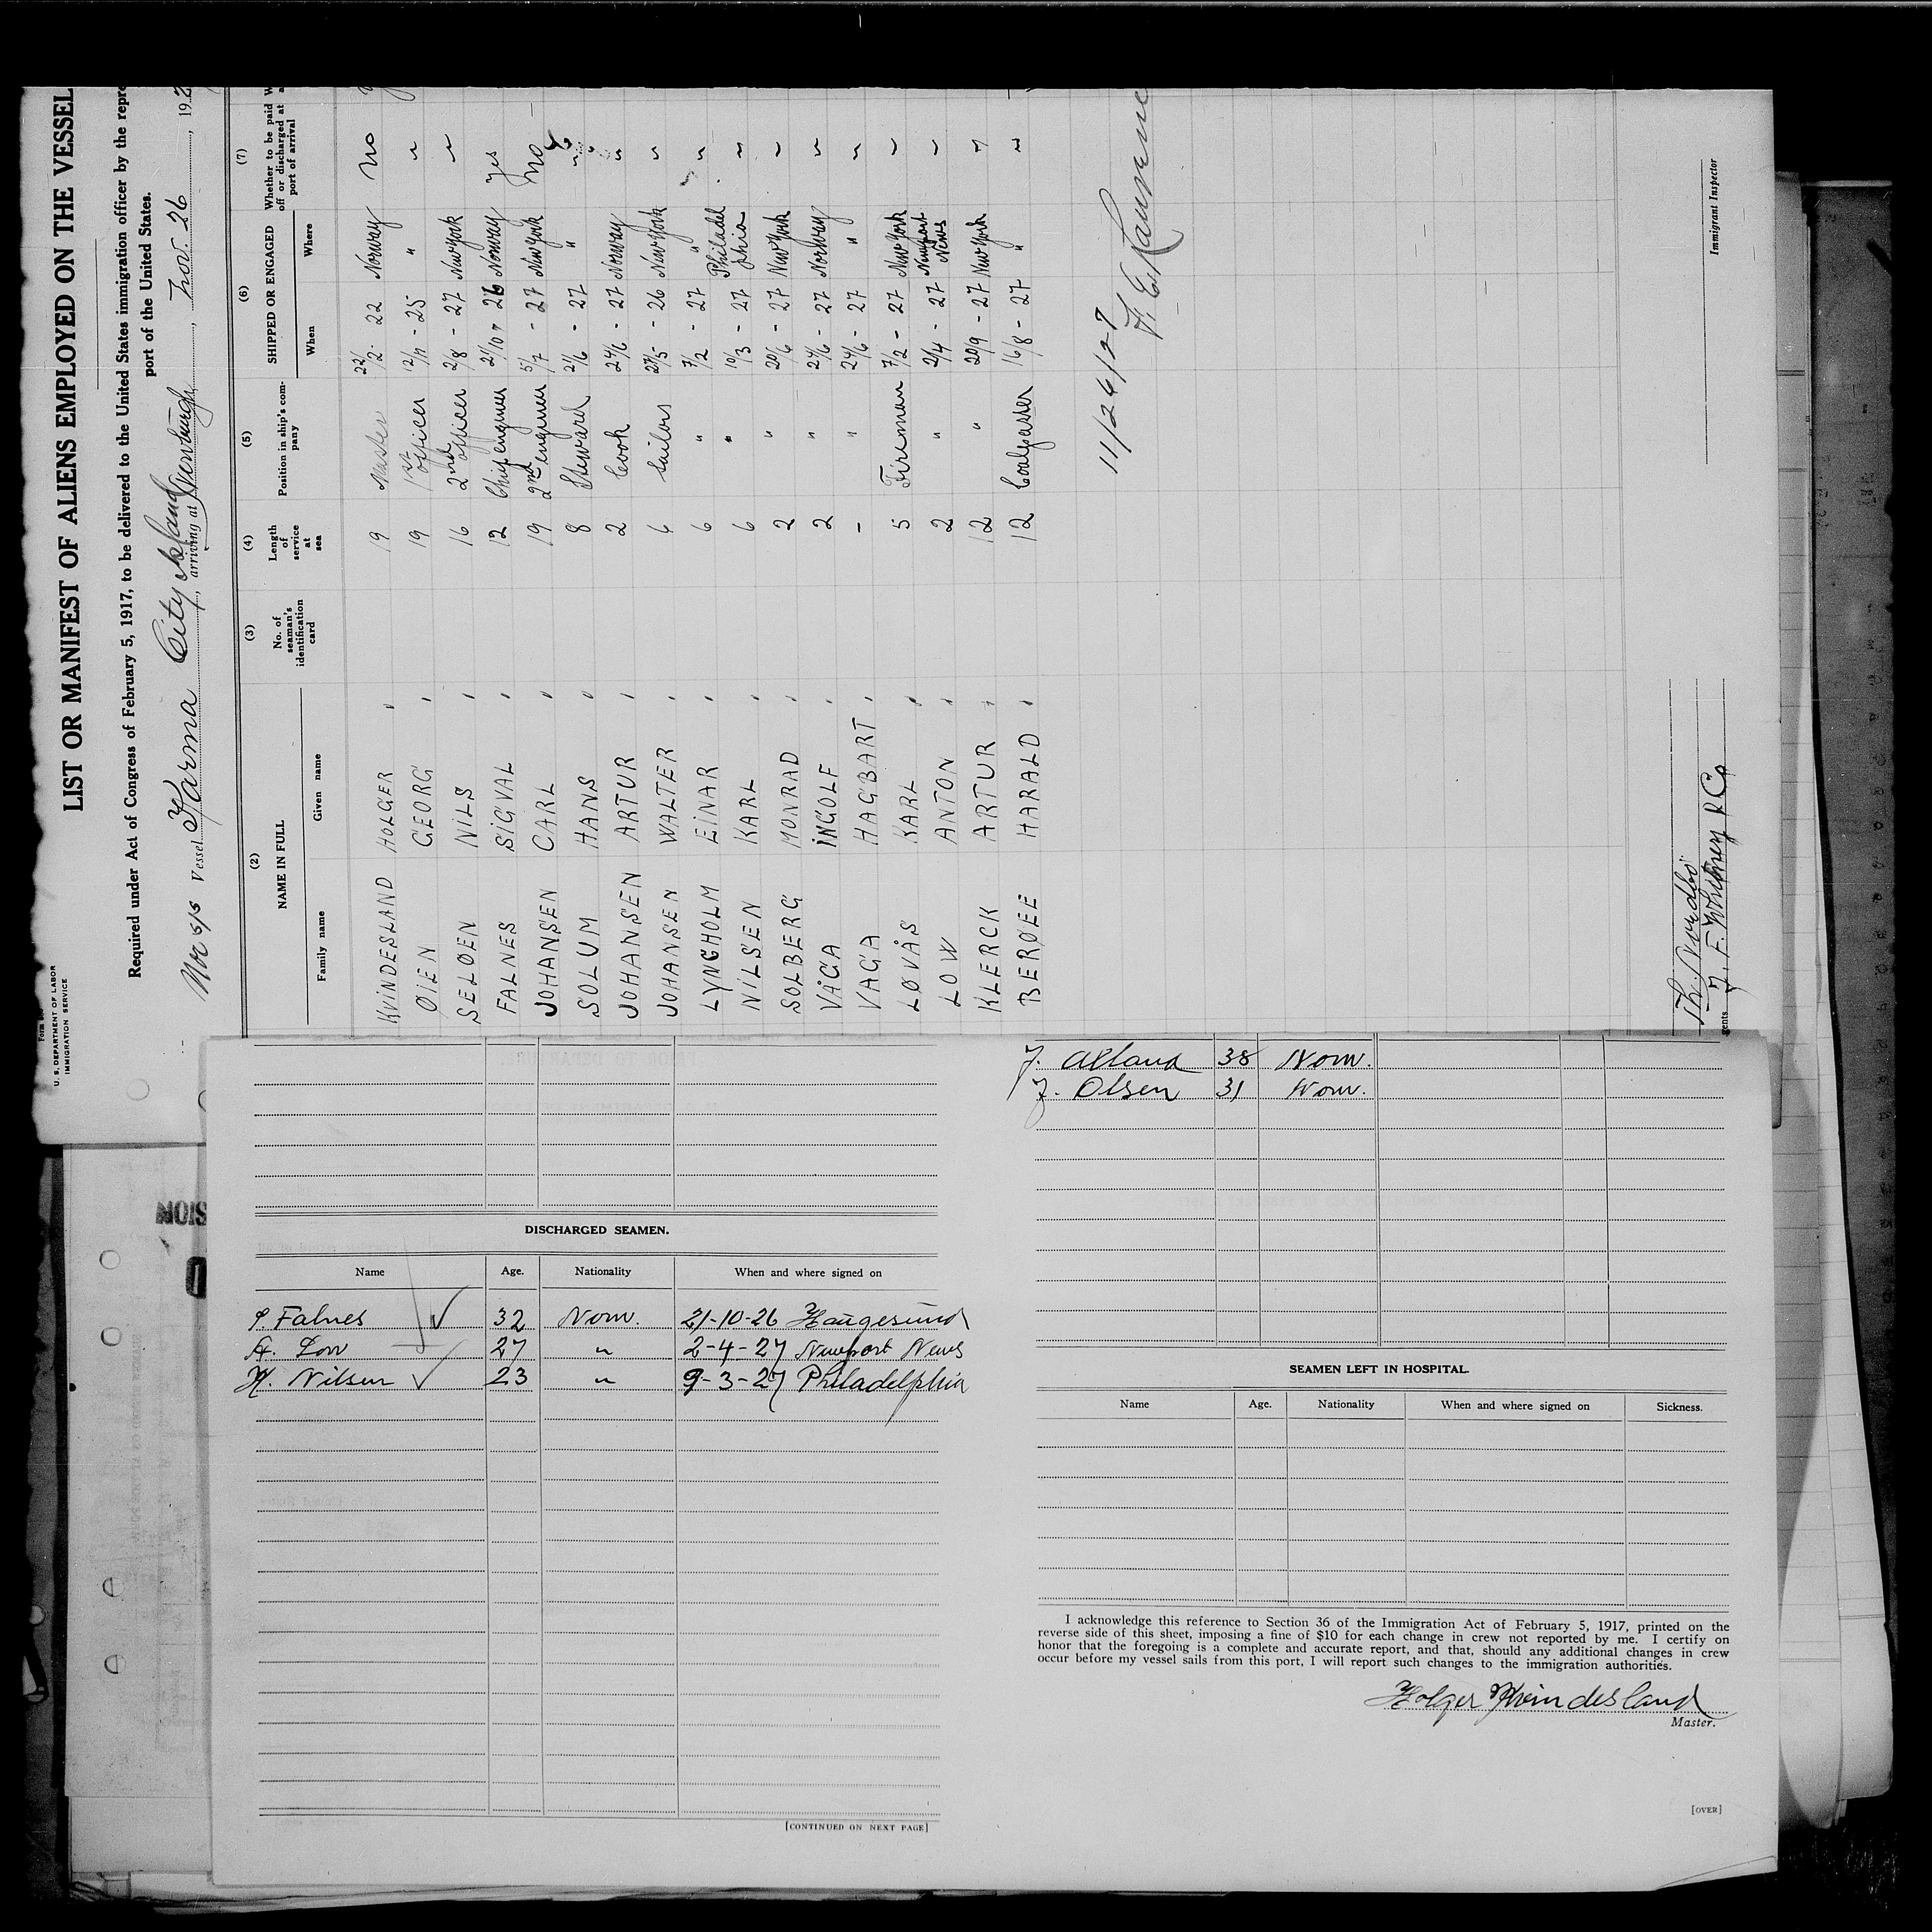 Form 689
U. S. DEPARTMENT OF LABOR
IMMIGRATION SERVICE
LIST OR MANIFEST OF ALIENS EMPLOYED ON THE VESSEL
Required under Act of Congress of February 5, 1917, to be delivered to the United States immigration officer by the repre
port of the United States.
Nor s/s Vessel Karma City Island, arriving at Newburgh, Nov. 26, 192
(2) (3) (4) (5) (6) (7)
NAME IN FULL No. of seaman's identification card Length of service at sea Position in ship's company SHIPPED OR ENGAGED Whether to be paid off or discharged at port of arrival
Family name Given name When Where
KVINDESLAND HOLGER " 19 Master 22/2 - 22 Norway no
ØIEN GEORG " 19 1st officer 12/11 - 25 " "
SELØEN NILS " 16 2nd officer 2/8 - 27 New York "
FALNES SIGVAL " 12 Chief engineer 21/10 - 26 Norway yes
JOHANSEN CARL " 19 2nd engineer 5/7 - 27 New York no
SOLUM HANS " 8 Steward 21/6 - 27 " "
JOHANSEN ARTUR " 2 Cook 24/6 - 27 Norway "
JOHANSEN WALTER " 6 Sailors 27/5 - 26 New York "
LYNGHOLM EINAR " 6 " 7/2 - 27 " "
NILSEN KARL " 6 " 10/3 - 27 Philadelphia "
SOLBERG MONRAD " 2 " 20/6 - 27 New York "
VÅGA INGOLF " 2 " 24/6 - 27 Norway "
VAGA HAGBART " - " 24/6 - 27 " "
LØVÅS KARL " 5 Fireman 7/2 - 27 New York "
LOW ANTON " 2 " 2/4 - 27 Newport News "
KLERCK ARTUR " 12 " 20/9 - 27 New York "
BERØEE HARALD " 12 Coalpasser 16/8 - 27 " "
11/26/27
Immigrant Inspector
Th. Nordbo
J. F. Whitney & Co
gents
J. Alland 38 Norw.
J. Olsen 31 Norw.
DISCHARGED SEAMEN.
Name Age. Nationality When and where signed on
S Falnes 32 Norw. 21-10-26 Haugesund
A. Low 27 " 2-4-27 Newport News
K. Nilsen 23 " 9-3-27 Philadelphia
[CONTINUED ON NEXT PAGE]
SEAMEN LEFT IN HOSPITAL.
Name Age. Nationality When and where signed on Sickness.
I acknowledge this reference to Section 36 of the Immigration Act of February 5, 1917, printed on the
reverse side of this sheet, imposing a fine of $10 for each change in crew not reported by me. I certify on
honor that the foregoing is a complete and accurate report, and that, should any additional changes in crew
occur before my vessel sails from this port, I will report such changes to the immigration authorities.
Holger Kvindesland
Master.
[OVER]